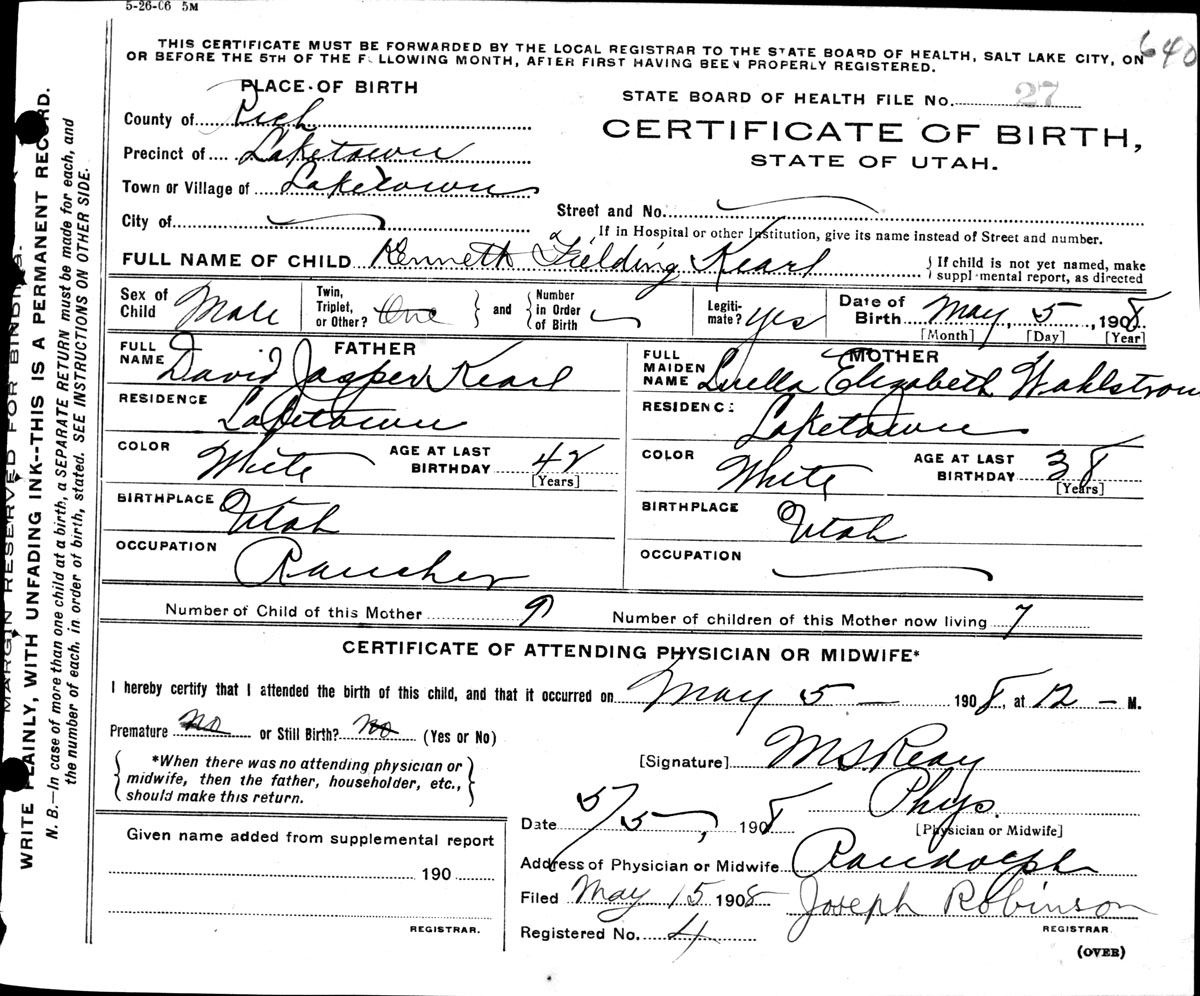 5-26-06 5M
640
THIS CERTIFICATE MUST BE FORWARDED BY THE LOCAL REGISTRAR TO THE STATE BOARD OF HEALTH, SALT LAKE CITY, ON
OR BEFORE THE 5TH OF THE F LLOWING MONTH, AFTER FIRST HAVING BEEN PROPERLY REGISTERED.
PLACE OF BIRTH
County of Rich
Precinct of Laketown
Town or Village of Laketown
City of
STATE BOARD OF HEALTH FILE No. 27
CERTIFICATE OF BIRTH,
STATE OF UTAH.
Street and No.
If in Hospital or other Institution, give its name instead of Street and number.
FULL NAME OF CHILD Kenneth Fielding Kearl
If child is not yet named, make
suppl mental report, as directed
Sex of Child Male
Twin, Triplet, or Other? One
and
Number in Order of Birth
Legiti-mate? yes
Date of Birth May 5, 1908
[Month] [Day] [Year]
FATHER
FULL NAME David Jasper Kearl
RESIDENCE Laketown
COLOR White AGE AT LAST BIRTHDAY 42
[Years]
BIRTHPLACE Utah
OCCUPATION Rancher
MOTHER
FULL MAIDEN NAME Luella Elizabeth Wahlstrom
RESIDENCE Laketown
COLOR White AGE AT LAST BIRTHDAY 38
[Years]
BIRTHPLACE Utah
OCCUPATION
Number of Child of this Mother 9 Number of children of this Mother now living 7
CERTIFICATE OF ATTENDING PHYSICIAN OR MIDWIFE*
I hereby certify that I attended the birth of this child, and that it occurred on May 5 – 1908, at 12 – M.
Premature no or Still Birth? no (Yes or No)
*When there was no attending physician or
midwife, then the father, householder, etc.,
should make this return.
[Signature] M.S. Reay
Phys.
[Physician or Midwife]
Date 5/5, 1908
Address of Physician or Midwife Randolph
Filed May 15 1908 Joseph Robinson
REGISTRAR
Registered No. 4
(OVER)
Given name added from supplemental report
190
REGISTRAR.
MARGIN RESERVED FOR BINDING.
WRITE PLAINLY, WITH UNFADING INK--THIS IS A PERMANENT RECORD.
N. B.—In case of more than one child at a birth, a SEPARATE RETURN must be made for each, and
the number of each, in order of birth, stated. SEE INSTRUCTIONS ON OTHER SIDE.